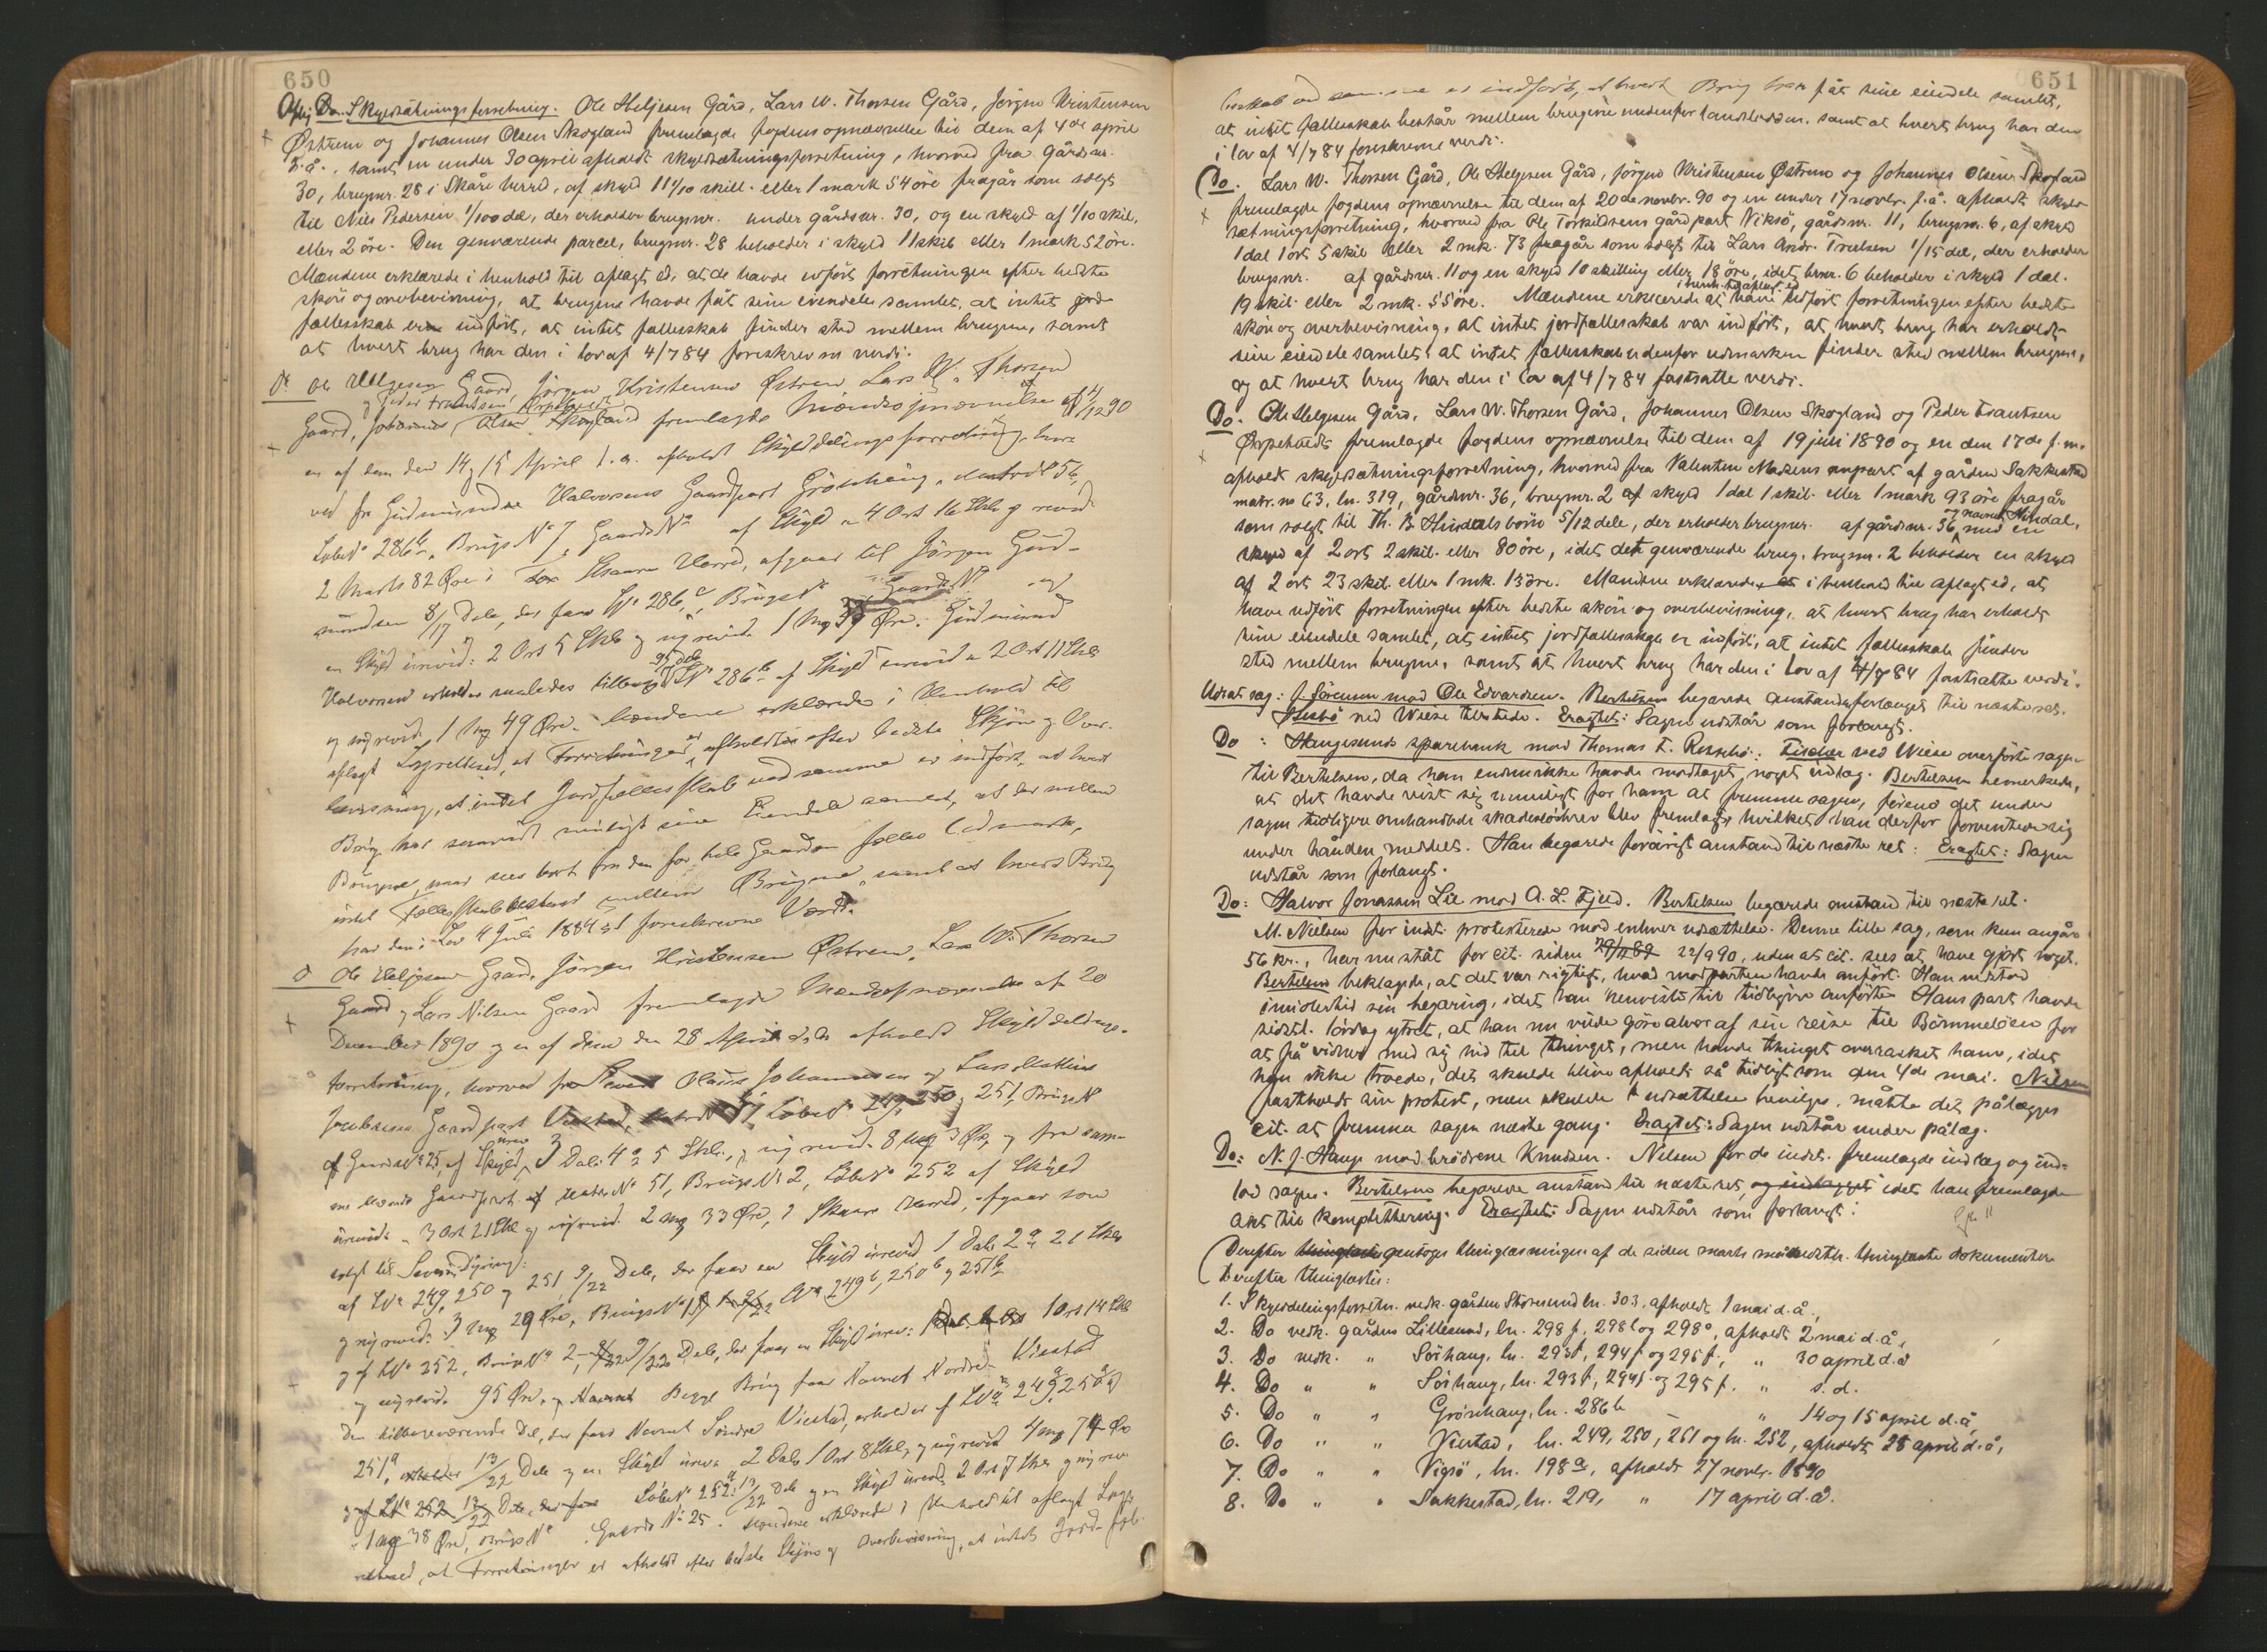 650
Do. Skyldsætningsforretning. Ole Helgesen Gård, Lars W. Thorsen Gård, Jørgen Kristensen
Østrem og Johannes Olsen Skogland fremlagde fogdens opnævnelse til dem af 4de april
d.å., samt en under 30 april afholdt skyldsætningsforretning, hvorved fra gårdsnr.
30, brugsnr. 28 i Skåre herred, af skyld 11 1/10 skill. eller 1 mark 54 öre fragår som solgt
til Nils Pedersen 1/100 del, der erholder brugsnr. under gårdsnr. 30, og en skyld af 1/10 skil.
eller 2 öre. Den genværende parcel, brugsnr. 28 beholder i skyld 11 skil. eller 1 mark 52 öre.
Mændene erklærede i henhold til aflagt ed, at de havde udført forretningen efter bedste
skön og overbevisning, at brugene havde fåt sine eiendele samlet, at intet jord-
fællesskab er indført, at intet fællesskab finder sted mellem brugene, samt
at hvert brug har den i lov af 4/7 84 foreskrevne verdi.
Do Ole Helgesen Gaard, Jørgen Kristensen Østrem Lars W. Thorsen
og Peder Frantsen Ørpetvedt
Gaard, Johannes Olsen Skogland fremlagde Mændsopnævnelse af 4/12 90
en af dem den 14 og 15 April d.a. afholdt Skylddelingsforretning, hvor
ved fra Gudmund Halvorsens Gaardpart Grönhaug, Matr No 56,
Løbe No 286b, Brugs No 7, Gaards No af Skyld 4 Ort 16 Skil og revid.
2 Mark 82 Øre i Skaare Herred, afgaar til Jørgen Gud-
mundsen 8/17 Dele, der faar LNo 286c, Brugs No Gaards No og
en Skyld urevid: 2 Ort 5 Skil og ny revid. 1 Mrk 33 Øre. Gudmund
Halvorsen erholder saaledes tilbage 9/17 dele LNo 286b af Skyld urevid 2 Ort 11 Skil
og nyrevid. 1 Mrk 49 Øre. Mændene erklærede i Henhold til
aflagt Lagrettesed, at Forretningen er afholdt efter bedste Skjön og Over-
bevisning, at intet Jordfællesskab ved samme er indført, at hvert
Brug har saavidt muligt sine Eiendele samlet, at der mellem
Brugene, naar sees bort fra den for hele Gaarden fælles Udmark,
intet Fællesskab bestaar mellem Brugene, samt at hvert Brug
har den i Lov 4 Juli 1884 foreskrevne Værdi.
Do Ole Helgesen Gaard, Jørgen Kristensen Østrem, Lars W. Thorsen
Gaard og Lars Nilsen Gaard fremlagde Mændsopnævnelse af 20
December 1890 og en af dem den 28 April d.a. afholdt Skylddelings-
forretning, hvorved fra Claus Johannesen og Lars Mathias
Jacobsens Gaardpart Viestad, Matr No 51, Løbe No 249, 250 og 251, Brugs No
af Gaards No 25, af Skyld urev 3 Daler 4 Ort 5 Skil, og ny revid. 8 Mrk 3 Øre, og fra sam-
me Mænds Gaardpart af Matr No 51, Brugs No 2, Løbe No 252 af Skyld
urevid. 3 Ort 21 Skil og nyrevid. 2 Mrk 33 Øre, i Skaare Herred, afgaar som
solgt til Severin Dyring:
af LNo 249, 250 og 251, 9/22 Dele, der faar en Skyld urevid 1 Dal. 2 Ort 21 Skil
og ny revid. 3 Mrk 29 Øre, Brugs No LNo 249b, 250b og 251b
og af LNo 252, Brugs No 2, 9/22 Dele, der faar en Skyld urev: 1 Ort 14 Skil
og ny revid. 95 Øre, og Begge Brug faar Navnet Nordre Viestad
Den tilbageværende Del, der faar Navnet Søndre Viestad, erholder af LNo 249a, 250a og
251a, 13/22 Dele og en Skyld urev. 2 Daler 1 Ort 8 Skil, og ny revid 4 Mrk 74 Øre
og Løbe No 252a 13/22 Dele og en Skyld urevid. 2 Ort 7 Skil og ny rev
1 Mrk 38 Øre, Brugs No Gaards No 25. Mændene erklærede i Henhold til aflagt Lag-
rettesed, at Forretningen er afholdt efter bedste Skjön og Overbevisning, at intet Jordfæl-
651
lesskab ved samme er indført, at hvert Brug har fåt sine eiendele samlet,
at intet fællesskab består mellem brugene udenfor landsloddene. samt at hvert brug har den
i lov af 4/7 84 foreskrevne verdi.
Do. Lars W. Thorsen Gård, Ole Helgesen Gård, Jörgen Kristensen Østrem og Johannes Olsen Skogland
fremlagde fogdens opnævnelse til dem af 20de novbr. 90 og en under 17 novbr. f.å. afholdt skyld-
sætningsforretning, hvorved fra Ole Torkildsens gårdpart Viksö, gårdsnr. 11, brugsnr. 6, af skyld
1 dal 1 ort 5 skil eller 2 mk. 73 fragår som solgt til Lars Andr. Truelsen 1/15 del, der erholder
brugsnr. af gårdsnr. 11 og en skyld 10 skilling eller 18 öre, idet brnr. 6 beholder i skyld 1 dal.
19 skil. eller 2 mk. 55 öre. Mændene erklærede i henh. til aflagt ed at have udført forretningen efter bedste
skön og overbevisning, at intet jordfællesskab var indført, at hvert brug har erholdt
sine eiendele samlet, at intet fællesskab udenfor udmarken finder sted mellem brugene,
og at hvert brug har den i lov af 4/7 84 fastsatte verdi.
Do. Ole Helgesen Gård, Lars W. Thorsen Gård, Johannes Olsen Skogland og Peder Frantsen
Ørpetvedt fremlagde fogdens opnævnelse til dem af 19 juli 1890 og en den 17de f.m.
afholdt skyldsætningsforretning, hvorved fra Valentin Madsens anpart af gården Sakkestad
matr. no 63, ln. 319, gårdsnr. 36, brugsnr. 2 af skyld 1 dal 1 skil. eller 1 mark 93 öre fragår
som solgt til Th. B. Hindals börn 5/12 dele, der erholder brugsnr. af gårdsnr. 36 og navnet Hindal, med en
skyld af 2 ort 2 skil. eller 80 öre, idet det genværende brug, brugsnr. 2 beholder en skyld
af 2 ort 23 skil. eller 1 mk. 13 öre. Mændene erklærede i henhold til aflagt ed, at
have udført forretningen efter bedste skön og overbevisning, at hvert brug har erholdt
sine eiendele samlet, at intet jordfællesskab er indført, at intet fællesskab finder
sted mellem brugene, samt at hvert brug har den i lov af 4/7 84 fastsatte verdi.
Udsat sag: J. Sörensen mod Ole Edvardsen. Bertelsen begærede anstand forlænget til næste ret.
ved Wiese tilstede. Eragtet: Sagen udstår som forlangt.
Do : Haugesunds sparebank mod Thomas T. Rossebö: ved Wiese overførte sagen
til Bertelsen, da han endnu ikke havde modtaget noget indlæg. Bertelsen bemerkede,
at det havde vist sig umuligt for ham at fremme sagen, förend det under
sagen tidligere omhandlede skadeslösbrev blev fremlagt, hvilket han derfor forventede sig
under hånden meddelt. Han begærede forövrigt anstand til næste ret: Eragtet: Sagen
udstår som forlangt.
Do: Halvor Jonassen Lie mod A. L. Fjeld. Bertelsen begærede anstand til næste ret.
M. Nielsen for indst. protesterede mod enhver udsættelse. Denne lille sag, som kun angår
56 kr., har nu ståt for cit. siden 29/11 89 22/9 90, uden at cit. sees at have gjort noget.
Bertelsen beklagede, at det var rigtigt, hvad modparten havde anført. Han nedstod
imidlertid sin begæring, idet han henviste til tidligere anførte. Hans part havde
sidstl. lördag ytret, at han nu vilde göre alvor af sin reise til Bömmelöen for
at få vidner med sig hid til thinget, men havde thinget overrasket ham, idet
han ikke troede, det skulde blive afholdt så tidligt som den 4de mai. Nielsen
fastholdt sin protest, men skulde udsættelse bevilges, måtte det pålægges
cit. at fremme sagen næste gang. Eragtet: Sagen udstår under pålæg.
Do: N. J. Hauge mod brödrene Knudsen. Nielsen for de indst. fremlagde indlæg og ind-
lod sagen. Bertelsen begærede anstand til næste ret, og indlægget idet han fremlagde
akt til komplettering. Eragtet: Sagen udstår som forlangt.
Derefter gentoges thinglæsningen af de siden marts thinglæste dokumenter
Derefter thinglæstes:
1. Skylddelingsforretn. vedk. gården Storesund ln. 303, afholdt 1 mai d.å.,
2. Do vedk. gården Lillesund, ln. 298 f, 298 l og 298 o, afholdt 2 mai d.å.,
3. Do vedk. " Sörhaug, ln. 293 f, 294 f og 295 f, " 30 april d.å
4. Do " " Sörhaug, ln. 293 f, 294 f og 295 f. " s.d.
5. Do " " Grönhaug, ln. 286 b " 14 og 15 april d.å,
6. Do " " Viestad, ln. 249, 250, 251 og ln. 252, afholdt 28 april d.å,
7. Do " " Vigsö, ln. 198 a, afholdt 27 novbr. 1890
8. Do " " Sakkestad, ln. 219, " 17 april d.å.